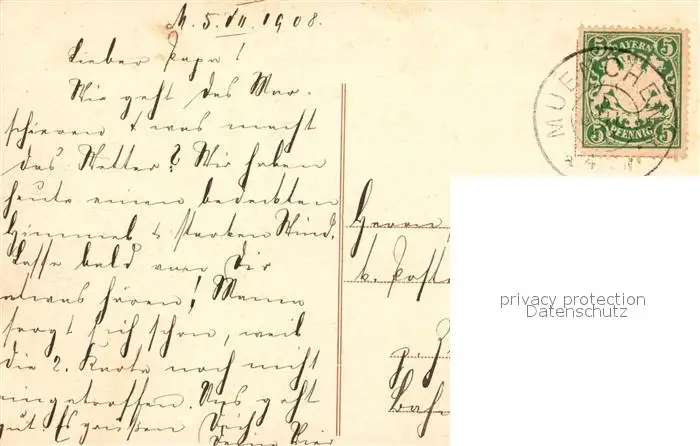 M. 5. VII. 1908.
Lieber Papa!
Wie geht das Mar-
schieren & was macht
das Wetter? Wir haben
heute einen bedeckten
Himmel & starken Wind.
Lasse bald von Dir
etwas hören! Mama
sorgt sich schon, weil
die 2. Karte noch nicht
eingetroffen. Uns geht
gut. Es grüßen Dich
Deine
BAYERN
5 5
5 5
PFENNIG
MUENCHEN
Herrn
k. Post
z. Z.
Bah
privacy protection
Datenschutz